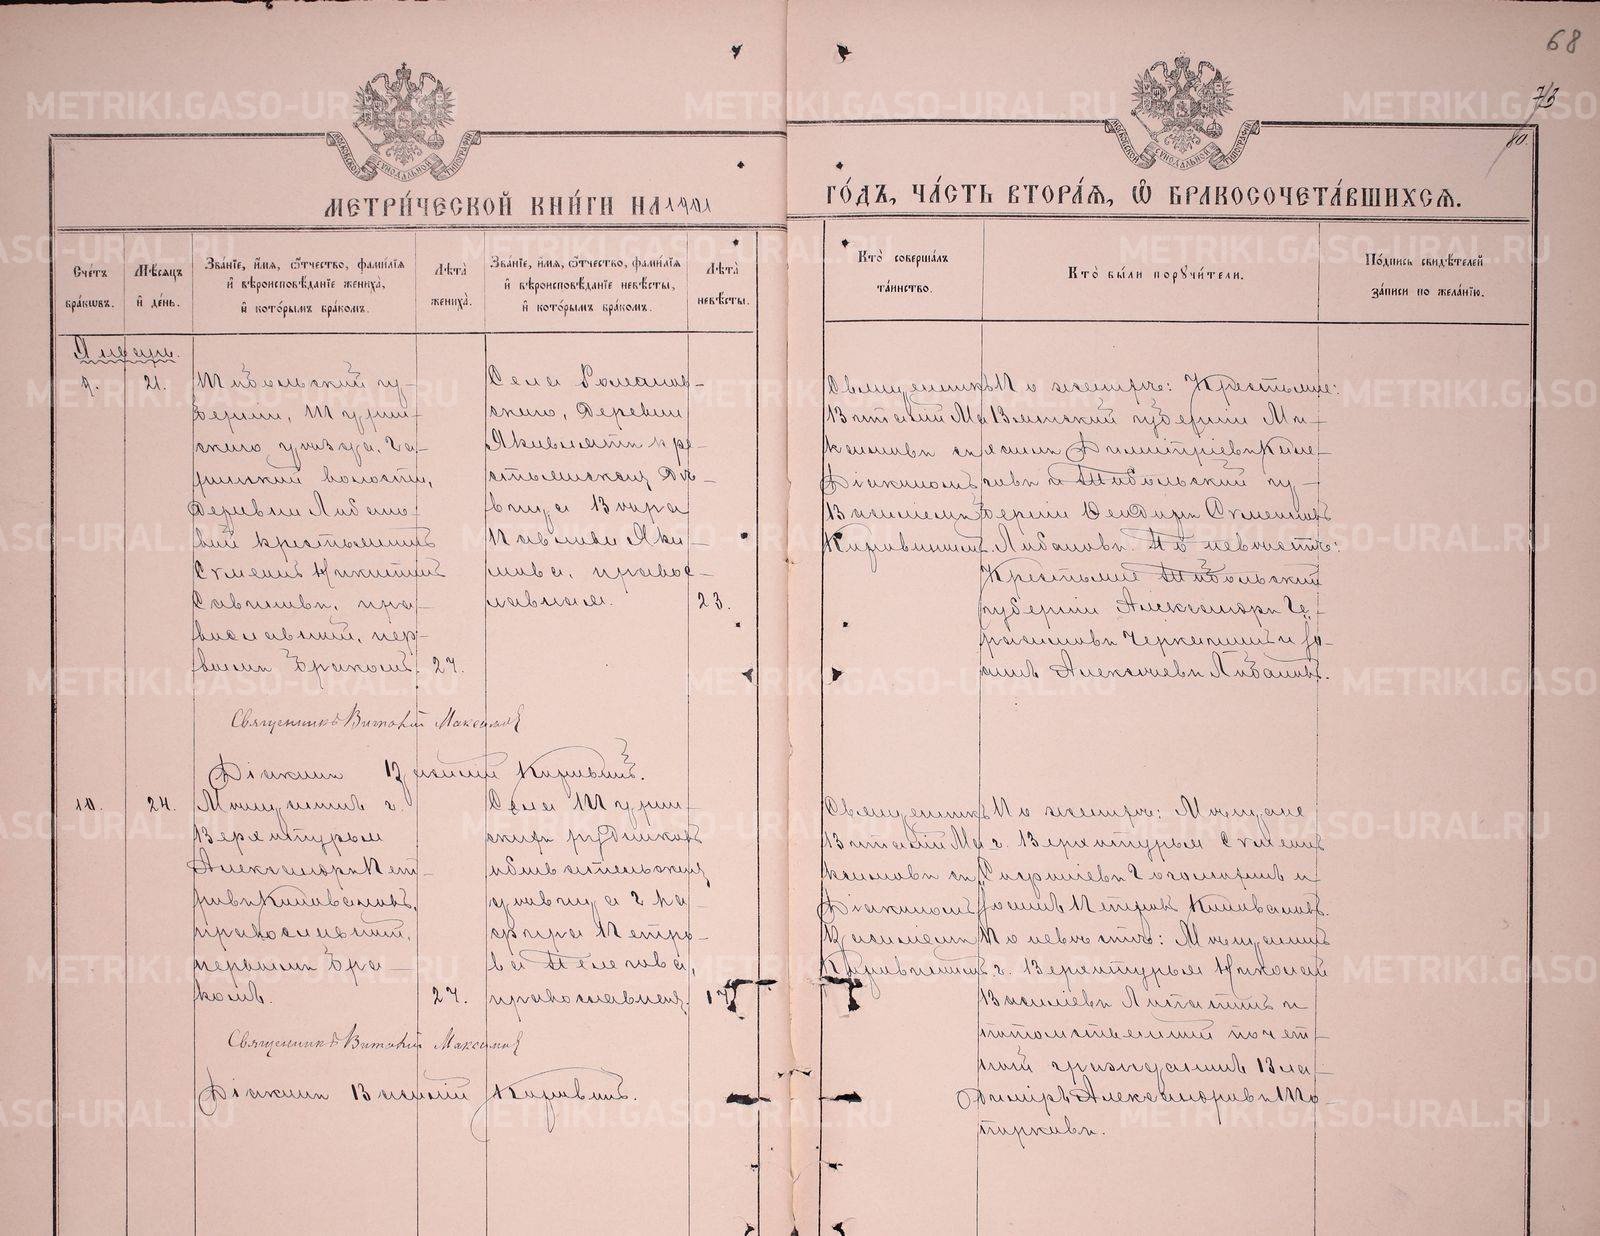 68
73
80.
МЕТРИ́ЧЕСКОЙ КНИ́ГИ НА 1901 ГО́ДЪ, ЧА́СТЬ ВТОРА́Я, Ѡ҆ БРАКОСОЧЕТА́ВШИХСЯ.
Сче́тъ бра́ковъ.
Мѣ́сяцъ и҆ де́нь.
Зва́нїе, и҆́мя, ѻ҆́тчество, фами́лїя
и҆ вѣроисповѣ́данїе жениха̀,
и҆ кото́рымъ бра́комъ.
Лѣта̀ жениха̀.
Зва́нїе, и҆́мя, ѻ҆́тчество, фами́лїя
и҆ вѣроисповѣ́данїе невѣ́сты,
и҆ кото́рымъ бра́комъ.
Лѣта̀ невѣ́сты.
Кто̀ соверша́лъ та́инство.
Кто̀ бы́ли порꙋчи́тели.
По́дпись свидѣ́телей за́писи по жела́нїю.
Январь.
9.
21.
Тобольской гу-
берніи, Турин-
скаго уѣзда, Га-
ринской волости,
деревни Лобано-
вой крестьянинъ
Семенъ Никитинъ
пра-
вославный, пер-
вымъ бракомъ.
27.
Села Романов-
скаго, деревни
кре-
стьянская дѣ-
вица Вара
Павлова Яки-
мова, правос-
лавная.
23.
Священникъ
Виталій Ма-
ксимовъ съ
Діакономъ
Василіемъ
По женихѣ: Крестьяне:
Вятской губерніи Ми-
хаилъ Димитріевъ
и Тобольской гу-
берніи Ѳеодоръ Семеновъ
Лобановъ. По невѣстѣ:
Крестьяне Тобольской
губерніи Александръ Ге-
расимовъ и Іо-
аннъ Алексѣевъ Лобановъ.
Священникъ Виталій Максимовъ
Діаконъ Василій
10.
24.
Мѣщанинъ г.
Верхотурья
Александръ Пет-
ровъ
православный,
первымъ бра-
комъ.
27.
Села Турин-
скихъ рудниковъ
обывательская
дѣвица Гла-
фира Петро-
ва
православная.
17
Священникъ
Виталій Ма-
ксимовъ съ
Діакономъ
Василіемъ
По женихѣ: Мѣщане
г. Верхотурья Семенъ
и
Іоаннъ Петровъ
По невѣстѣ: Мѣщанинъ
г. Верхотурья Николай
Василіевъ и
потомственный почет-
ный гражданинъ Вла-
диміръ Александровъ То-
порковъ.
Священникъ Виталій Максимовъ
Діаконъ Василій
METRIKI.GASO-URAL.RU